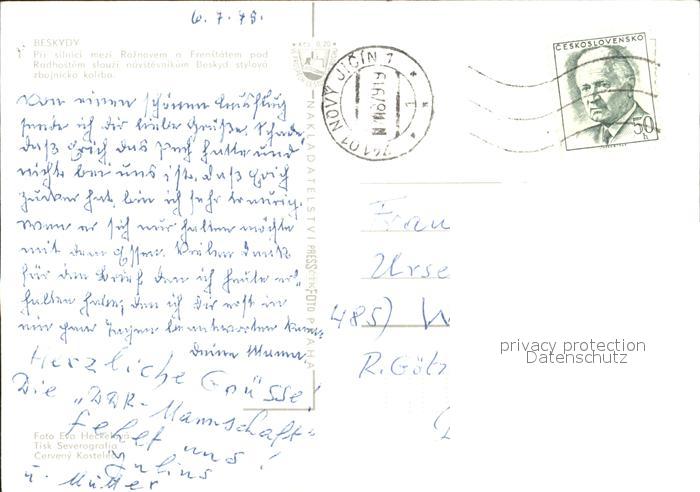 6.7.79.
BESKYDY
Při silnici mezi Rožnovem a Frenštátem pod
Radhoštěm slouží návštěvníkům Beskyd stylová
zbojnická koliba.
Von einem schönen Ausflug
sende ich dir liebe Grüße. Schade,
daß Erich das Pech hatte und
nicht bei uns ist. daß Erich
Zucker hat, bin ich sehr traurig.
wenn er sich nur halten möchte
mit dem Essen. Vielen Dank
für den Brief den ich heute er-
halten habe; den ich dir erst in
ein paar Tagen beantworten kann.
deine Mama.
Herzliche Grüsse!
Die „DDR-Mannschaft"
fehlt uns!
Julius
u. Mutter
Foto Eva Heckelová
Tisk Severografia
Červený Kostelec
NAKLADATELSTVÍ PRESSFOTO PRAHA
741 01 NOVÝ JIČÍN 1
ČESKOSLOVENSKO
50
Frau
Urse
485) W
R. Götz
privacy protection
Datenschutz